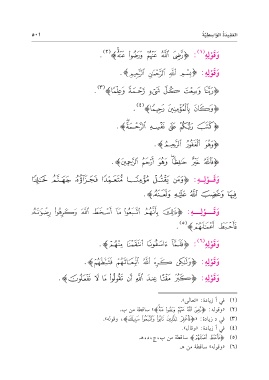 العقيدة الواسطية
٥٠١
وَقَوْلِهِ(١): ﴿رَّضِيَ ٱللَّهُ عَنْهُمْ وَرَضُوا۟ عَنْهُ﴾(٢).
وَقَوْلِهِ: ﴿بِسْمِ ٱللَّهِ ٱلرَّحْمَٰنِ ٱلرَّحِيمِ﴾.
﴿رَبَّنَا وَسِعْتَ كُلَّ شَىْءٍ رَّحْمَةً وَعِلْمًا﴾(٣).
﴿وَكَانَ بِٱلْمُؤْمِنِينَ رَحِيمًا﴾(٤).
﴿كَتَبَ رَبُّكُمْ عَلَىٰ نَفْسِهِ ٱلرَّحْمَةَ﴾.
﴿وَهُوَ ٱلْغَفُورُ ٱلرَّحِيمُ﴾.
﴿فَٱللَّهُ خَيْرٌ حَٰفِظًا وَهُوَ أَرْحَمُ ٱلرَّٰحِمِينَ﴾.
وَقَوْلِهِ: ﴿وَمَن يَقْتُلْ مُؤْمِنًا مُّتَعَمِّدًا فَجَزَآؤُهُۥ جَهَنَّمُ خَٰلِدًا
فِيهَا وَغَضِبَ ٱللَّهُ عَلَيْهِ وَلَعَنَهُۥ﴾.
وَقَوْلِهِ: ﴿ذَٰلِكَ بِأَنَّهُمُ ٱتَّبَعُوا۟ مَآ أَسْخَطَ ٱللَّهَ وَكَرِهُوا۟ رِضْوَٰنَهُۥ
فَأَحْبَطَ أَعْمَٰلَهُمْ﴾(٥).
وَقَوْلِهِ(٦): ﴿فَلَمَّآ ءَاسَفُونَا ٱنتَقَمْنَا مِنْهُمْ﴾.
وَقَوْلِهِ: ﴿وَلَٰكِن كَرِهَ ٱللَّهُ ٱنۢبِعَاثَهُمْ فَثَبَّطَهُمْ﴾.
وَقَوْلِهِ: ﴿كَبُرَ مَقْتًا عِندَ ٱللَّهِ أَن تَقُولُوا۟ مَا لَا تَفْعَلُونَ﴾.
(١) في أ زيادة: «تعالى».
(٢) «وقوله: ﴿رَّضِيَ ٱللَّهُ عَنْهُمْ وَرَضُوا۟ عَنْهُ﴾» ساقطة من ب.
(٣) في د زيادة: ﴿فَٱغْفِرْ لِلَّذِينَ تَابُوا۟ وَٱتَّبَعُوا۟ سَبِيلَكَ﴾، وقوله.
(٤) في أ زيادة: «وقال».
(٥) ﴿فَأَحْبَطَ أَعْمَٰلَهُمْ﴾ ساقطة من ب، ج، د، هـ.
(٦) «وقوله» ساقطة من هـ.